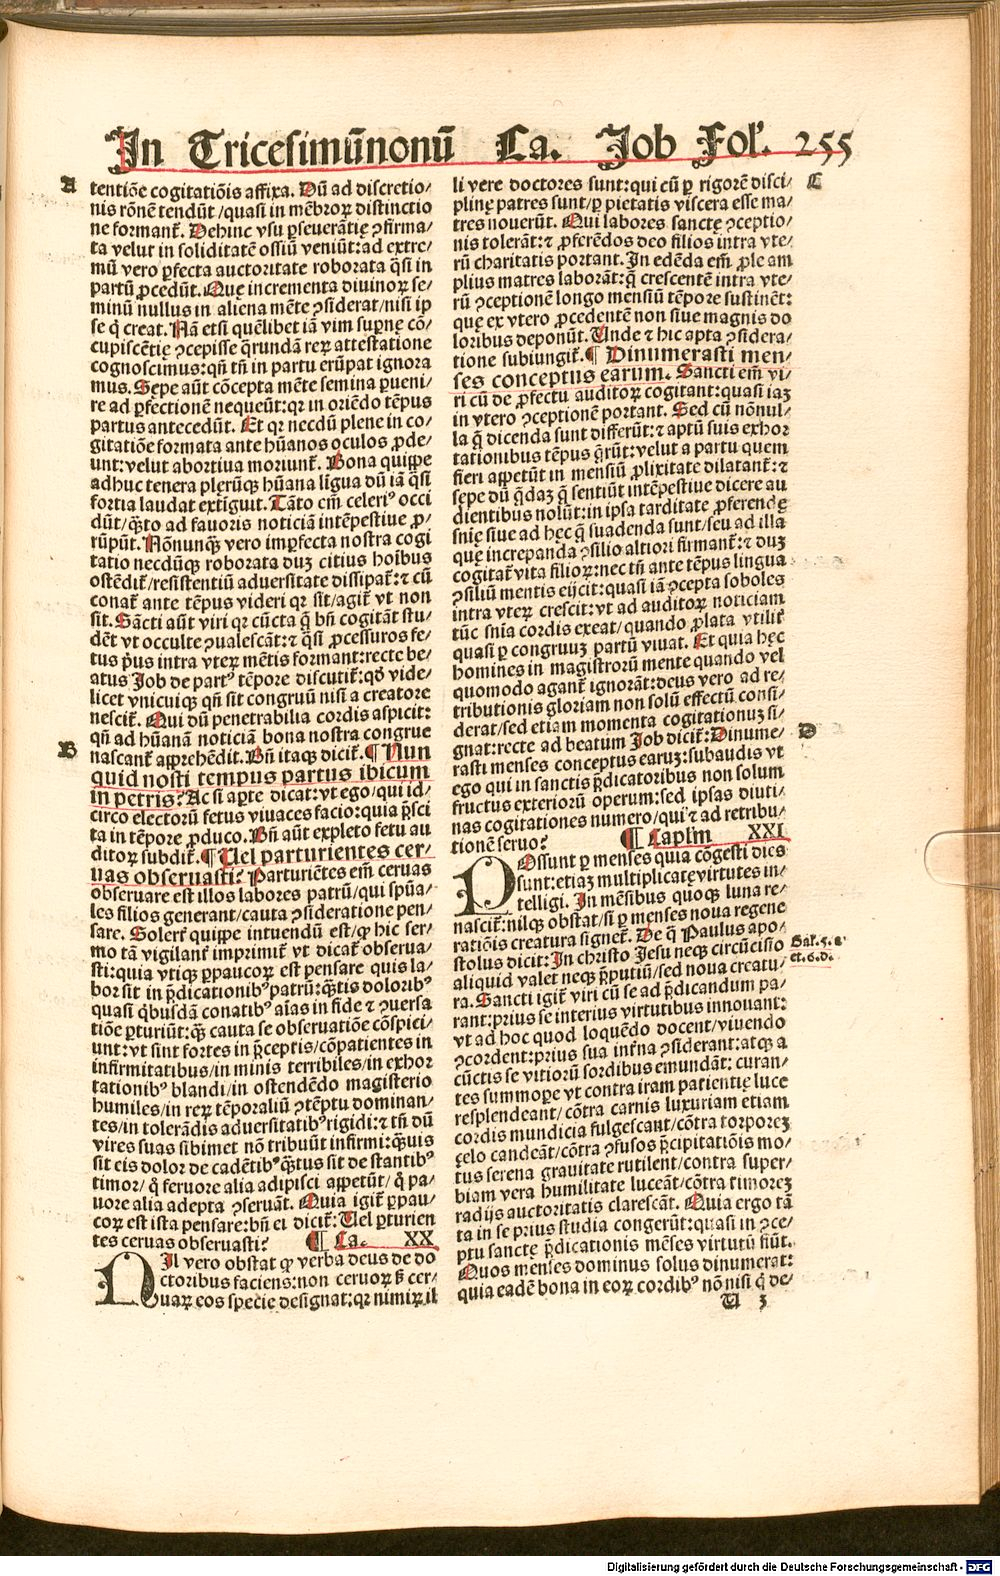 In Tricesimūnonū Ca. Job Fol'. 255
A
tentiōe cogitatiōis affixa. Dū ad discretio/
nis rōnē tendūt/quasi in mēbroꝝ distinctio
ne formant̄. Dehinc vsu ꝑseuerātię ꝯfirma/
ta velut in soliditatē ossiū veniūt:ad extre/
mū vero ꝑfecta auctoritate roborata q̄si in
partū ꝓcedūt. Quę incrementa diuinoꝝ se/
minū nullus in aliena mēte ꝯsiderat/nisi ip
se q̇ creat. Nā etsi quēlibet iā vim supnę cō/
cupiscētię ꝯcepisse q̄rundā reꝝ attestatione
cognoscimus:qn̄ tn̄ in partu erūpat ignora
mus. Sępe aūt cōcepta mēte semina ꝑueni/
re ad ꝑfectionē nequeūt:qꝛ in oriēdo tēpus
partus antecedūt. Et qꝛ necdū plene in co/
gitatiōe formata ante hūanos oculos ꝓde/
unt:velut abortiua moriunt̄. Bona quippe
adhuc tenera plęrūqꝫ hūana līgua dū iā q̄si
fortia laudat extīguit. Tāto em̄ celeri⁹ occi
dūt/q̄to ad fauoris noticiā intēpestiue ꝓ/
rūpūt. Nōnunqꝫ vero imꝑfecta nostra cogi
tatio necdūqꝫ roborata duꝫ citius hoībus
ostēdit̄/resistentiū aduersitate dissipat̄:⁊ cū
conat̄ ante tēpus videri qꝛ sit/agit̄ vt non
sit. Sācti aūt viri qꝛ cūcta q̄ bn̄ cogitāt stu/
dēt vt occulte ꝯualescāt:⁊ q̄si ꝓcessuros fe/
tus p̄us intra vteꝝ mētis formant:recte be/
atus Job de part⁹ tēpore discutit̄:qd̛ vide/
licet vnicuiqꝫ qn̄ sit congruū nisi a creatore
nescit̄. Qui dū penetrabilia cordis aspicit:
qn̄ ad hūanā noticiā bona nostra congrue
B
nascant̄ apprehēdit. Bn̄ itaqꝫ dicit̄. ¶ Nun
quid nosti tempus partus ibicum
in petris? Ac si aꝑte dicat:vt ego/qui id/
circo electorū fetus viuaces facio:quia p̄sci
ta in tēpore ꝓduco. Bn̄ aūt expleto fetu au
ditoꝝ subdit̄. ¶ Vel parturientes cer/
uas obseruasti? Parturiētes em̄ ceruas
obseruare est illos labores patrū/qui spūa/
les filios generant/cauta ꝯsideratione pen/
sare. Solert̄ quippe intuendū est/ꝙ hic ser/
mo tā vigilant̄ imprimit̄ vt dicat̄ obserua/
sti:quia vtiqꝫ ꝑpaucoꝝ est pensare quis la/
bor sit in p̄dicationib⁹ patrū:q̄tis dolorib⁹
quasi q̇busdā conatib⁹ aīas in fide ⁊ ꝯuersa
tiōe ꝑturiūt:qꝫ cauta se obseruatiōe cōspici/
unt:vt sint fortes in p̄ceptis/cōpatientes in
infirmitatibus/in minis terribiles/in exhor
tationib⁹ blandi/in ostendēdo magisterio
humiles/in reꝝ tēporaliū ꝯtēptu dominan/
tes/in tolerādis aduersitatib⁹ rigidi:⁊ tn̄ dū
vires suas sibimet nō tribuūt infirmi:q̄uis
sit eis dolor de cadētib⁹ q̄tus sit de stantib⁹
timor/q̊ feruore alia adipisci appetūt/q̊ pa/
uore alia adepta ꝯseruāt. Quia igit̄ ꝑpau/
coꝝ est ista pensare:bn̄ ei dicit̄: Vel ꝑturien
tes ceruas obseruasti? ¶ Ca. XX
NIl vero obstat ꝙ verba deus de do
ctoribus faciens:non ceruoꝝ sꝫ cer/
uaꝝ eos specie designat:qꝛ nimiꝝ il
li vere doctores sunt:qui cū ꝑ rigorē disci/
C
plinę patres sunt/ꝑ pietatis viscera esse ma/
tres nouerūt. Qui labores sanctę ꝯceptio/
nis tolerāt:⁊ ꝓferēdos deo filios intra vte/
rū charitatis portant. In edēda em̄ ꝓle am
plius matres laborāt:q̄ crescentē intra vte/
rū ꝯceptionē longo mensiū tēpore sustinēt:
quę ex vtero ꝓcedentē non siue magnis do
loribus deponūt. Unde ⁊ hic apta ꝯsidera/
tione subiungit̄. ¶ Dinumerasti men/
ses conceptus earum. Sancti em̄ vi/
ri cū de ꝓfectu auditoꝝ cogitant:quasi iaꝫ
in vtero ꝯceptionē portant. Sed cū nōnul/
la q̄ dicenda sunt differūt:⁊ aptū suis exhor
tationibus tēpus q̄rūt:velut a partu quem
fieri appetūt in mensiū ꝓlixitate dilatant̄:⁊
sępe dū q̄daꝫ q̄ sentiūt intēpestiue dicere au
dientibus nolūt:in ipsa tarditate ꝓferendę
snīę siue ad hęc q̄ suadenda sunt/seu ad illa
quę increpanda ꝯsilio altiori firmant̄:⁊ duꝫ
cogitat̄ vita filioꝝ:nec tn̄ ante tēpus lingua
ꝯsiliū mentis eijcit:quasi iā ꝯcepta soboles
intra vteꝝ crescit:vt ad auditoꝝ noticiam
tūc snīa cordis exeat/quando ꝓlata vtilit̄
quasi ꝑ congruuꝫ partū viuat. Et quia hęc
homines in magistrorū mente quando vel
quomodo agant̄ ignorāt:deus vero ad re/
tributionis gloriam non solū effectū consi/
derat/sed etiam momenta cogitationuꝫ si/
gnat:recte ad beatum Job dicit̄: Dinume/
D
rasti menses conceptus earuꝫ:subaudis vt
ego qui in sanctis p̄dicatoribus non solum
fructus exteriorū operum:sed ipsas diuti/
nas cogitationes numero/qui ⁊ ad retribu/
tionē seruo? ¶ Caplm̄ XXI
POssunt ꝑ menses quia cōgesti dies
sunt:etiaꝫ multiplicatę virtutes in/
telligi. In mēsibus quoqꝫ luna re/
nascit̄:nilqꝫ obstat/si ꝑ menses noua regene
ratiōis creatura signet̄. De q̊ Paulus apo/
stolus dicit: In christo Jesu neqꝫ circūcisio
Gal'. 5. a
et. 6. d.
aliquid valet neqꝫ p̄putiū/sed noua creatu/
ra. Sancti igit̄ viri cū se ad p̄dicandum pa/
rant:prius se interius virtutibus innouant:
vt ad hoc quod loquēdo docent/viuendo
ꝯcordent:prius sua int̄na ꝯsiderant:atqꝫ a
cūctis se vitiorū sordibus emundāt: curan/
tes summope vt contra iram patientię luce
resplendeant/cōtra carnis luxuriam etiam
cordis mundicia fulgescant/cōtra torporeꝫ
ꝫelo candeāt/cōtra ꝯfusos p̄cipitatiōis mo/
tus serena grauitate rutilent/contra super/
biam vera humilitate luceāt/cōtra timoreꝫ
radijs auctoritatis clarescāt. Quia ergo tā
ta in se prius studia congerūt:quasi in ꝯce/
ptu sanctę p̄dicationis mēses virtutū fiūt.
Quos menses dominus solus dinumerat:
quia eadē bona in eoꝝ cordib⁹ nō nisi q̇ de/
U 3
Digitalisierung gefördert durch die Deutsche Forschungsgemeinschaft - DFG